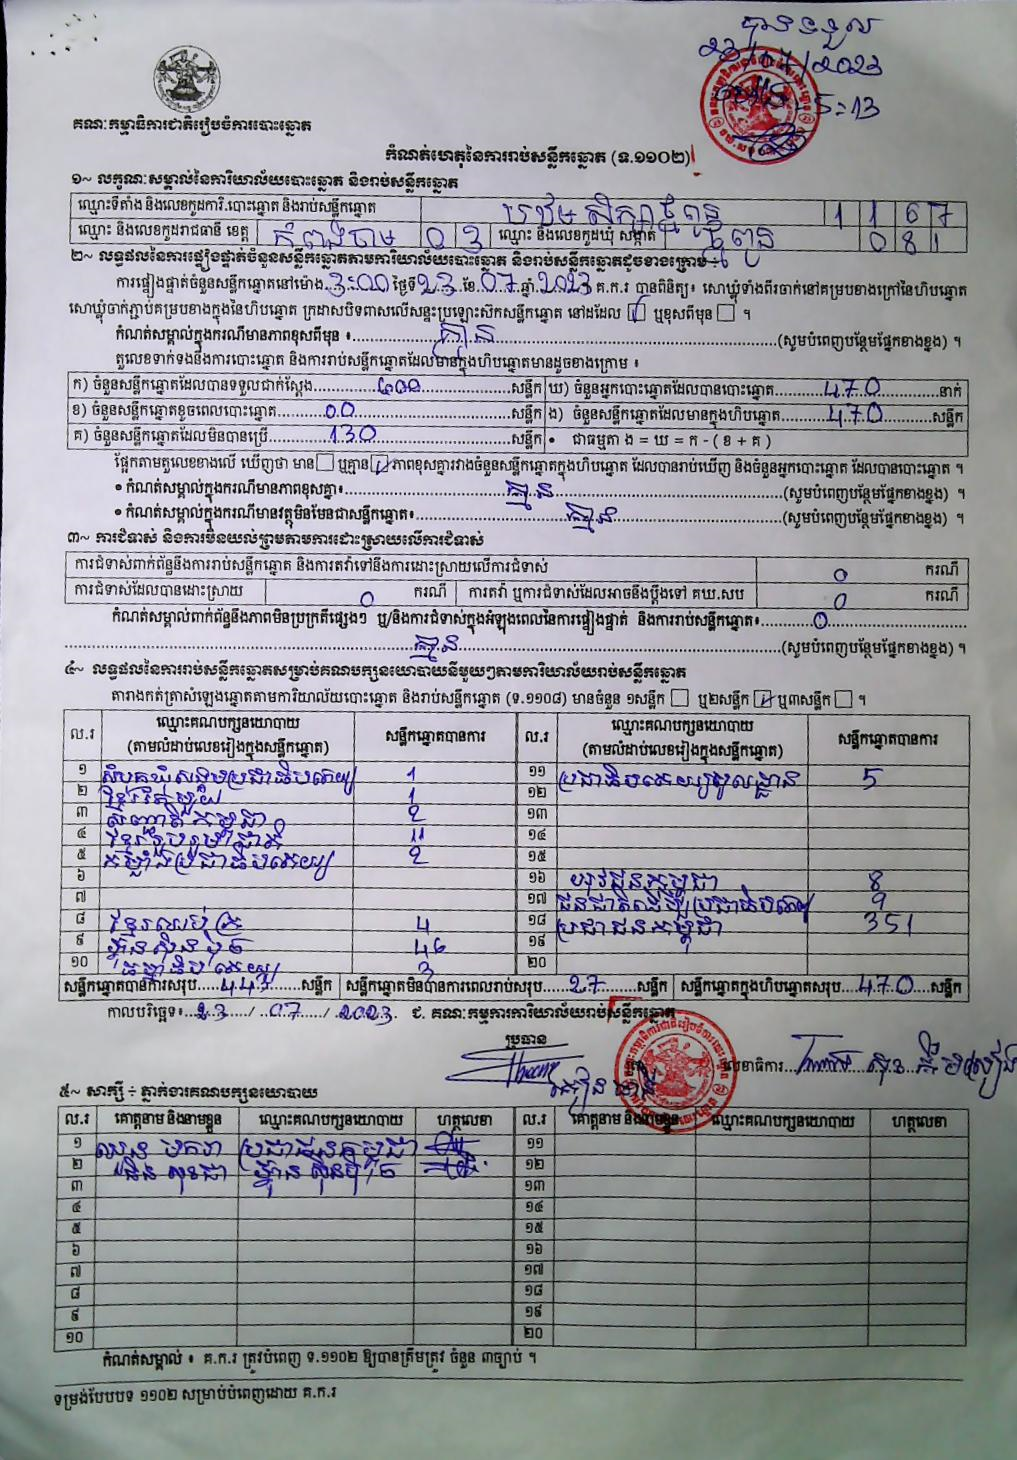 បានទទួល
23/07/2023
5:13
គណៈកម្មាធិការជាតិរៀបចំការបោះឆ្នោត
កំណត់ហេតុនៃការរាប់សន្លឹកឆ្នោត (ទ.១១០២)
១~ លក្ខណៈសម្គាល់នៃការិយាល័យបោះឆ្នោត និងរាប់សន្លឹកឆ្នោត
ឈ្មោះទីតាំង និងលេខកូដការិ.បោះឆ្នោត និងរាប់សន្លឹកឆ្នោត បឋមសិក្សាថ្មពូន 1 1 6 7
ឈ្មោះ និងលេខកូដរាជធានី ខេត្ត កំពង់ចាម 0 3 ឈ្មោះ និងលេខកូដឃុំ សង្កាត់ ថ្មពូន 0 8 1
២~ លទ្ធផលនៃការផ្ទៀងផ្ទាត់ចំនួនសន្លឹកឆ្នោតតាមការិយាល័យបោះឆ្នោត និងរាប់សន្លឹកឆ្នោតដូចខាងក្រោម ÷
ការផ្ទៀងផ្ទាត់ចំនួនសន្លឹកឆ្នោតនៅម៉ោង 3:00 ថ្ងៃទី 23 ខែ 07 ឆ្នាំ 2023 គ.ក.រ បានពិនិត្យ៖ សោឃ្លុំទាំងពីរចាក់នៅគម្របខាងក្រៅនៃហិបឆ្នោត
សោឃ្លុំចាក់ភ្ជាប់គម្របខាងក្នុងនៃហិបឆ្នោត ក្រដាសបិទពាសលើសន្ទះប្រឡោះស៊កសន្លឹកឆ្នោត នៅដដែល ☑ ឬខុសពីមុន ☐ ។
កំណត់សម្គាល់ក្នុងករណីមានភាពខុសពីមុន ៖ គ្មាន (សូមបំពេញបន្ថែមផ្នែកខាងខ្នង) ។
តួលេខទាក់ទងនឹងការបោះឆ្នោត និងការរាប់សន្លឹកឆ្នោតដែលមានក្នុងហិបឆ្នោតមានដូចខាងក្រោម ៖
ក) ចំនួនសន្លឹកឆ្នោតដែលបានទទួលជាក់ស្តែង 600 សន្លឹក ឃ) ចំនួនអ្នកបោះឆ្នោតដែលបានបោះឆ្នោត 470 នាក់
ខ) ចំនួនសន្លឹកឆ្នោតខូចពេលបោះឆ្នោត 00 សន្លឹក ង) ចំនួនសន្លឹកឆ្នោតដែលមានក្នុងហិបឆ្នោត 470 សន្លឹក
គ) ចំនួនសន្លឹកឆ្នោតដែលមិនបានប្រើ 130 សន្លឹក • ជាធម្មតា ង = ឃ = ក - ( ខ + គ )
ផ្អែកតាមតួលេខខាងលើ ឃើញថា មាន ☐ ឬគ្មាន ☑ ភាពខុសគ្នារវាងចំនួនសន្លឹកឆ្នោតក្នុងហិបឆ្នោត ដែលបានរាប់ឃើញ និងចំនួនអ្នកបោះឆ្នោត ដែលបានបោះឆ្នោត ។
• កំណត់សម្គាល់ក្នុងករណីមានភាពខុសគ្នា៖ គ្មាន (សូមបំពេញបន្ថែមផ្នែកខាងខ្នង) ។
• កំណត់សម្គាល់ក្នុងករណីមានវត្ថុមិនមែនជាសន្លឹកឆ្នោត៖ គ្មាន (សូមបំពេញបន្ថែមផ្នែកខាងខ្នង) ។
៣~ ការជំទាស់ និងការមិនយល់ព្រមតាមការដោះស្រាយលើការជំទាស់
ការជំទាស់ពាក់ព័ន្ធនឹងការរាប់សន្លឹកឆ្នោត និងការតវ៉ាទៅនឹងការដោះស្រាយលើការជំទាស់ 0 ករណី
ការជំទាស់ដែលបានដោះស្រាយ 0 ករណី ការតវ៉ា ឬការជំទាស់ដែលអាចនឹងប្តឹងទៅ គឃ.សប 0 ករណី
កំណត់សម្គាល់ពាក់ព័ន្ធនឹងភាពមិនប្រក្រតីផ្សេងៗ ឬ/និងការជំទាស់ក្នុងអំឡុងពេលនៃការផ្ទៀងផ្ទាត់ និងការរាប់សន្លឹកឆ្នោត៖ 0
គ្មាន (សូមបំពេញបន្ថែមផ្នែកខាងខ្នង) ។
៤~ លទ្ធផលនៃការរាប់សន្លឹកឆ្នោតសម្រាប់គណបក្សនយោបាយនីមួយៗតាមការិយាល័យរាប់សន្លឹកឆ្នោត
តារាងកត់ត្រាសំឡេងឆ្នោតតាមការិយាល័យបោះឆ្នោត និងរាប់សន្លឹកឆ្នោត (ទ.១១០៨) មានចំនួន ១សន្លឹក ☐ ឬ២សន្លឹក ☑ ឬ៣សន្លឹក ☐ ។
ល.រ ឈ្មោះគណបក្សនយោបាយ (តាមលំដាប់លេខរៀងក្នុងសន្លឹកឆ្នោត) សន្លឹកឆ្នោតបានការ ល.រ ឈ្មោះគណបក្សនយោបាយ (តាមលំដាប់លេខរៀងក្នុងសន្លឹកឆ្នោត) សន្លឹកឆ្នោតបានការ
១ សំបុកឃ្មុំសង្គមប្រជាធិបតេយ្យ 1 ១១ ប្រជាធិបតេយ្យមូលដ្ឋាន 5
២ ខ្មែរតែមួយ 1 ១២
៣ សញ្ជាតិកម្ពុជា 2 ១៣
៤ ខ្មែររួបរួមជាតិ 11 ១៤
៥ កម្លាំងប្រជាធិបតេយ្យ 2 ១៥
៦ ១៦ យុវជនកម្ពុជា 8
៧ ១៧ ជនជាតិដើមប្រជាធិបតេយ្យ 9
៨ ខ្មែរឈប់ក្រ 4 ១៨ ប្រជាជនកម្ពុជា 351
៩ ហ៊្វុនស៊ិនប៉ិច 46 ១៩
១០ ធម្មាធិបតេយ្យ 3 ២០
សន្លឹកឆ្នោតបានការសរុប 443 សន្លឹក សន្លឹកឆ្នោតមិនបានការពេលរាប់សរុប 27 សន្លឹក សន្លឹកឆ្នោតក្នុងហិបឆ្នោតសរុប 470 សន្លឹក
កាលបរិច្ឆេទ៖ 23 / 07 / 2023. ជ. គណៈកម្មការការិយាល័យរាប់សន្លឹកឆ្នោត
ប្រធាន
លេខាធិការ
៥~ សាក្សី ÷ ភ្នាក់ងារគណបក្សនយោបាយ
ល.រ គោត្តនាម និងនាមខ្លួន ឈ្មោះគណបក្សនយោបាយ ហត្ថលេខា ល.រ គោត្តនាម និងនាមខ្លួន ឈ្មោះគណបក្សនយោបាយ ហត្ថលេខា
១ ឈន មករា ប្រជាជនកម្ពុជា ១១
២ ហ៊្វុនស៊ិនប៉ិច ១២
៣ ១៣
៤ ១៤
៥ ១៥
៦ ១៦
៧ ១៧
៨ ១៨
៩ ១៩
១០ ២០
កំណត់សម្គាល់ ៖ គ.ក.រ ត្រូវបំពេញ ទ.១១០២ ឱ្យបានត្រឹមត្រូវ ចំនួន ៣ច្បាប់ ។
ទម្រង់បែបបទ ១១០២ សម្រាប់បំពេញដោយ គ.ក.រ